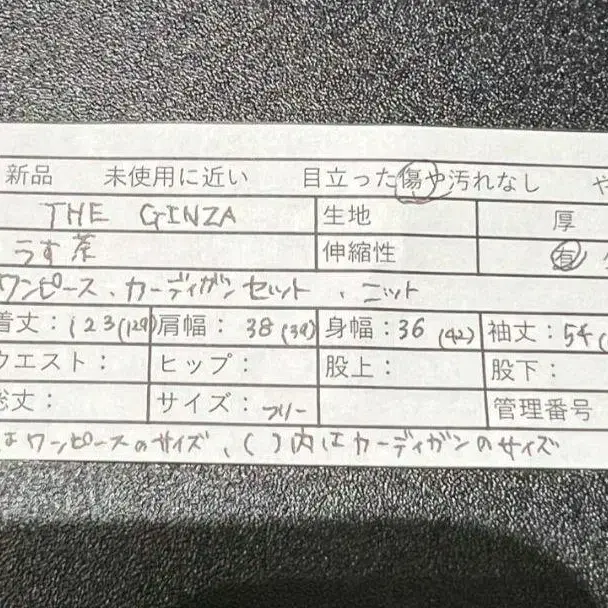 新品 未使用に近い 目立った傷や汚れなし や
THE GINZA 生地 厚
うす茶 伸縮性 有
ワンピース、カーディガンセット、ニット
着丈：123(129) 肩幅：38(39) 身幅：36(42) 袖丈：54(
ウエスト： ヒップ： 股上： 股下：
総丈： サイズ：フリー 管理番号
はワンピースのサイズ、( )内はカーディガンのサイズ